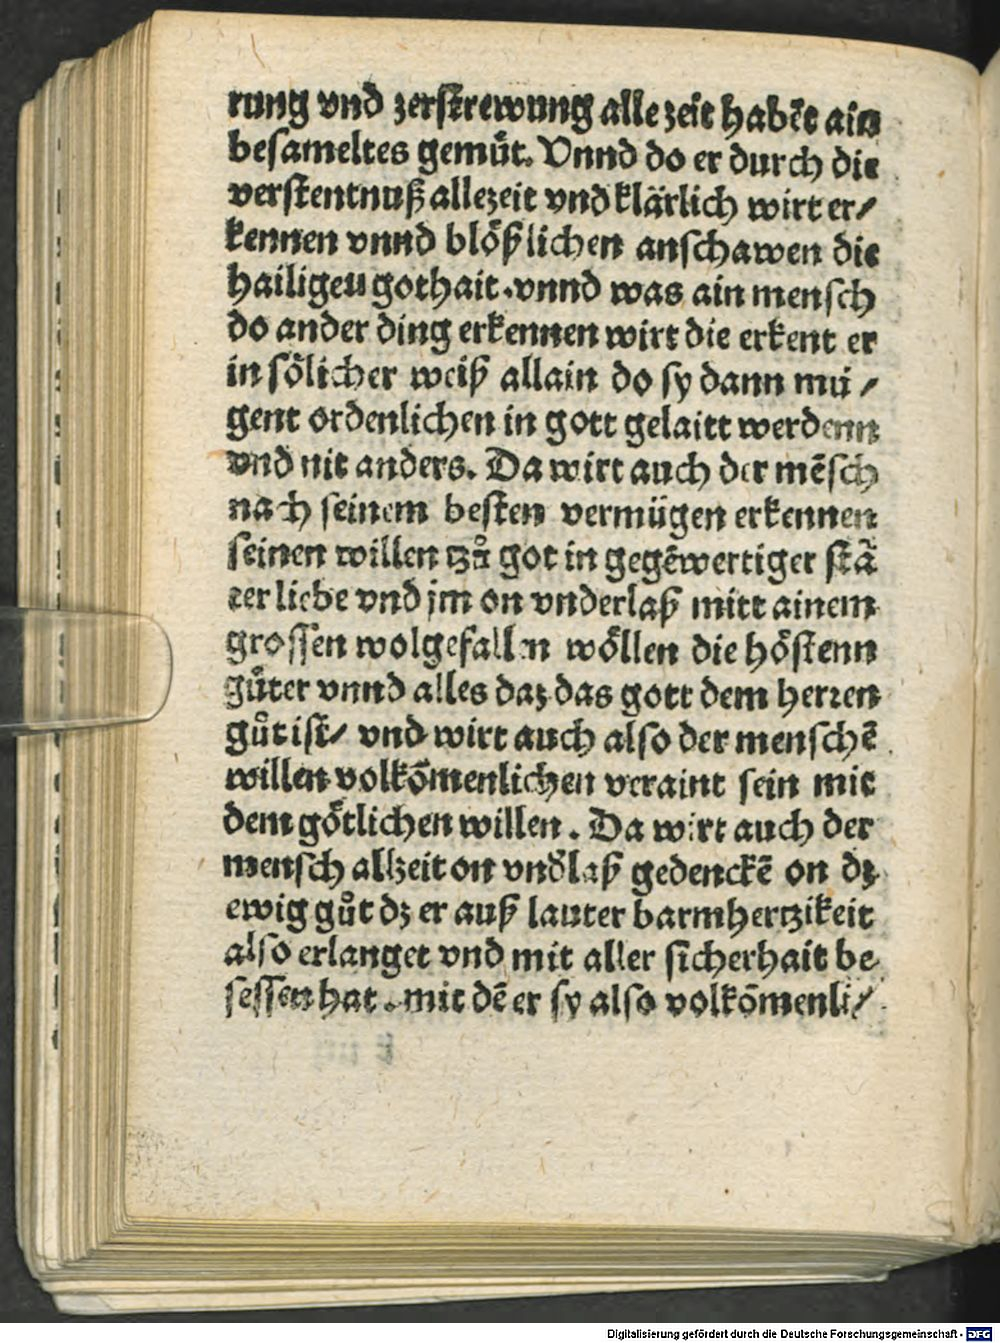 rung vnd zerstrewung alle zeit habēt ain
besameltes gemüt. Vnnd do er durch die
verstentnuß allezeit vnd klärlich wirt er/
kennen vnnd blößlichen anschawen die
hailigen gothait. vnnd was ain mensch
do ander ding erkennen wirt die erkent er
in sölicher weiß allain do sy dann mü/
gent ordenlichen in gott gelaitt werdenn
vnd nit anders. Da wirt auch der mēsch
nach seinem besten vermügen erkennen
seinen willen tzů got in gegēwertiger stā
ter liebe vnd jm on vnderlaß mitt ainem
grossen wolgefallen wöllen die höstenn
gůter vnnd alles daz das gott dem herren
gůt ist/ vnd wirt auch also der menschē
willen volkōmenlichen veraint sein mit
dem götlichen willen. Da wirt auch der
mensch allzeit on vnd̄laß gedenckē on dz
ewig gůt dz er auß lauter barmhertzikeit
also erlanget vnd mit aller sicherhait be
sessen hat. mit dē er sy also volkōmenli/
Digitalisierung gefördert durch die Deutsche Forschungsgemeinschaft - DFG